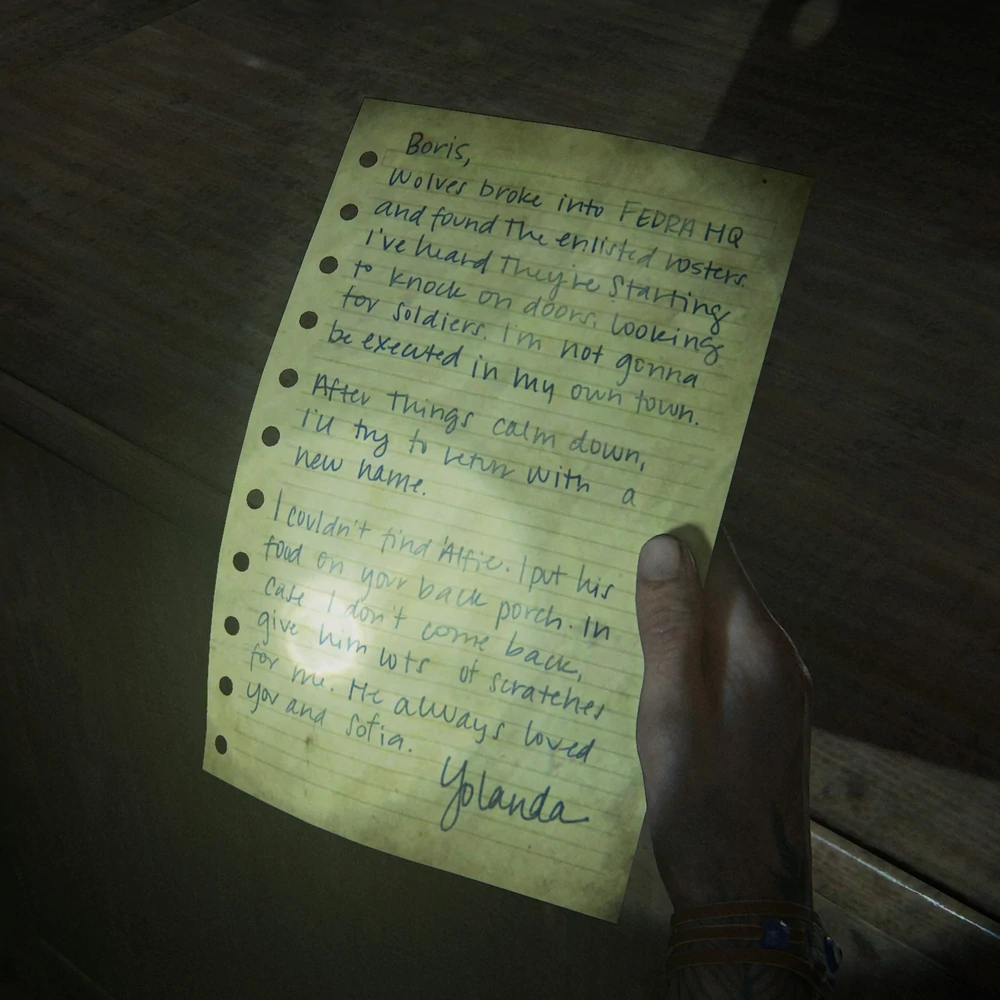 Boris,
Wolves broke into FEDRA HQ
and found the enlisted rosters.
I've heard they're starting
to knock on doors, looking
for soldiers. I'm not gonna
be executed in my own town.
After things calm down,
I'll try to return with a
new name.
I couldn't find Alfie. I put his
food on your back porch. In
case I don't come back,
give him lots of scratches
for me. He always loved
you and Sofia.
Yolanda